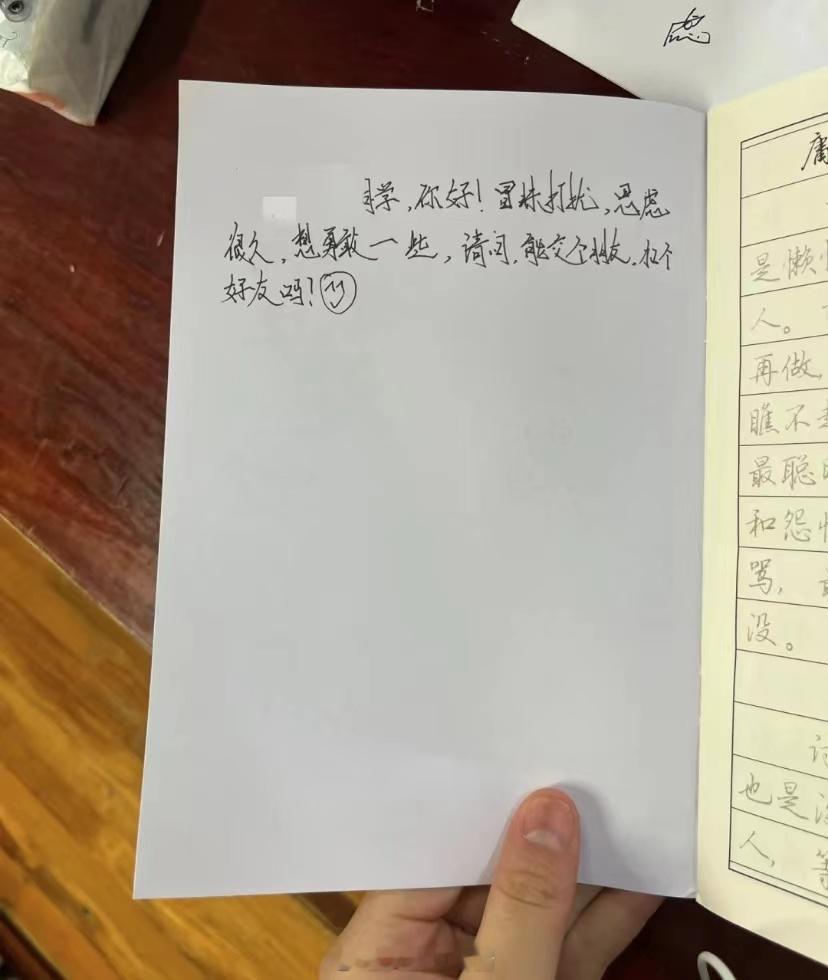 虑
同学,你好!冒昧打扰,思虑
很久,想勇敢一些,请问,能交个朋友,扣个
好友吗?
是懒
人。
再做,
瞧不起
最聪
和怨
骂,
没。
也是没
人,等